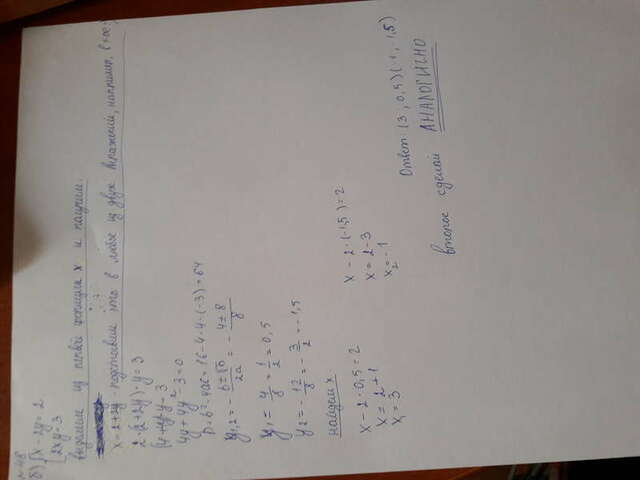 б) { x - 2y = 2
2xy = 3
выделим из первой формулы x и получим
x = 2 + 2y - подставим это в любое из двух выражений, например, в
2·(2+2y)·y = 3
(4+4y)·y = 3
4y + 4y² - 3 = 0
D = b² - 4ac = 16 - 4·4·(-3) = 64
y₁,₂ = - b±√D / 2a = - 4±8 / 8
y₁ = 4/8 = 1/2 = 0,5
y₂ = - 12/8 = - 3/2 = -1,5
найдём x
x - 2·0,5 = 2
x = 2 + 1
x₁ = 3
x - 2·(-1,5) = 2
x = 2 - 3
x₂ = -1
Ответ: (3, 0,5) (-1, -1,5)
второе сделай АНАЛОГИЧНО